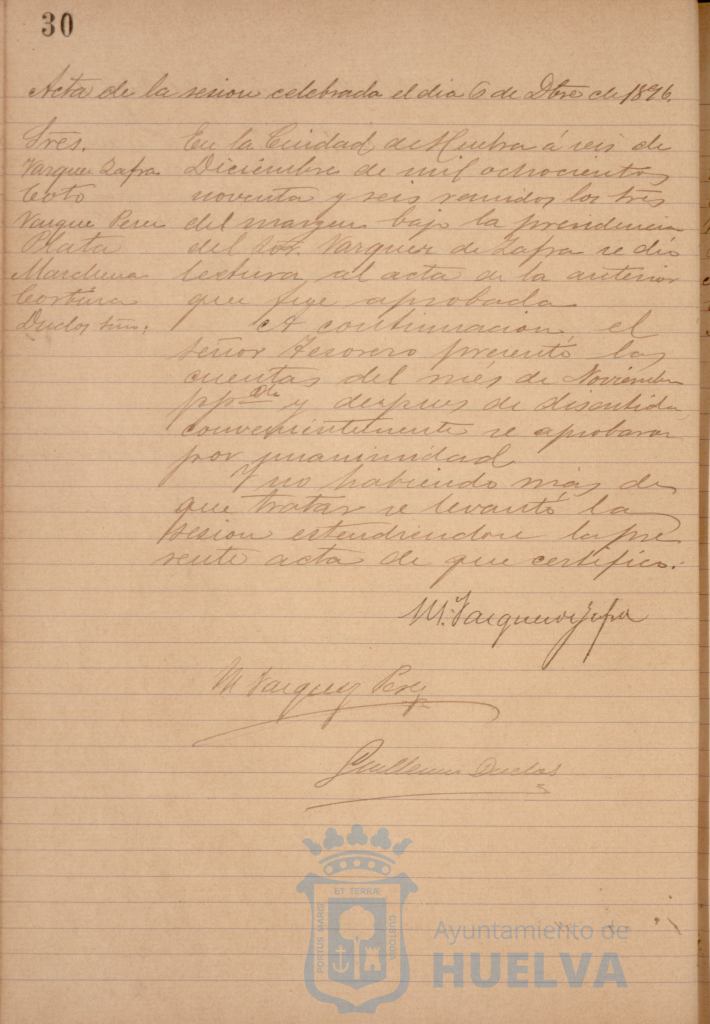 30
Acta de la sesion celebrada el dia 6 de Dbre de 1896.
Sres.
Vazque Zafra
Coto
Vazque Perez
Plata
Marchena
Cortina
Duclos
En la Ciudad de Huelva á seis de
Diciembre de mil ochocientos
noventa y seis reunidos los sres
del margen bajo la presidencia
del Vazquez de Zafra se dió
lectura al acta de la anterior
que fue aprobada
A continuacion, el
señor Tesorero presentó las
cuentas del més de Noviembre
pp y despues de discutida
convenientemente se aprobaron
por unanimidad
Y no habiendo más de
que tratar se levantó la
sesion estendiendose la pre
sente acta de que certifico.
M. Vazquez de Zafra
M Vazquez Perez
Guillermo Duclos
PORTUS MARIS
ET TERRÆ
CUSTODIA
Ayuntamiento de
HUELVA